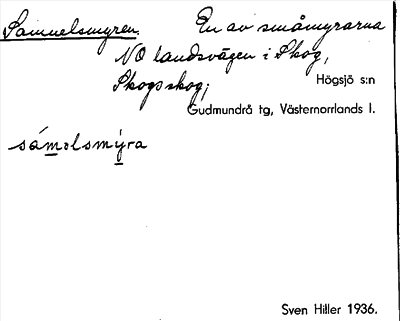 Samuelsmyren. En av småmyrarna
NO landsvägen i Skog,
Skogs skog; Högsjö s:n
Gudmundrå tg, Västernorrlands l.
sámәlsmýra
Sven Hiller 1936.